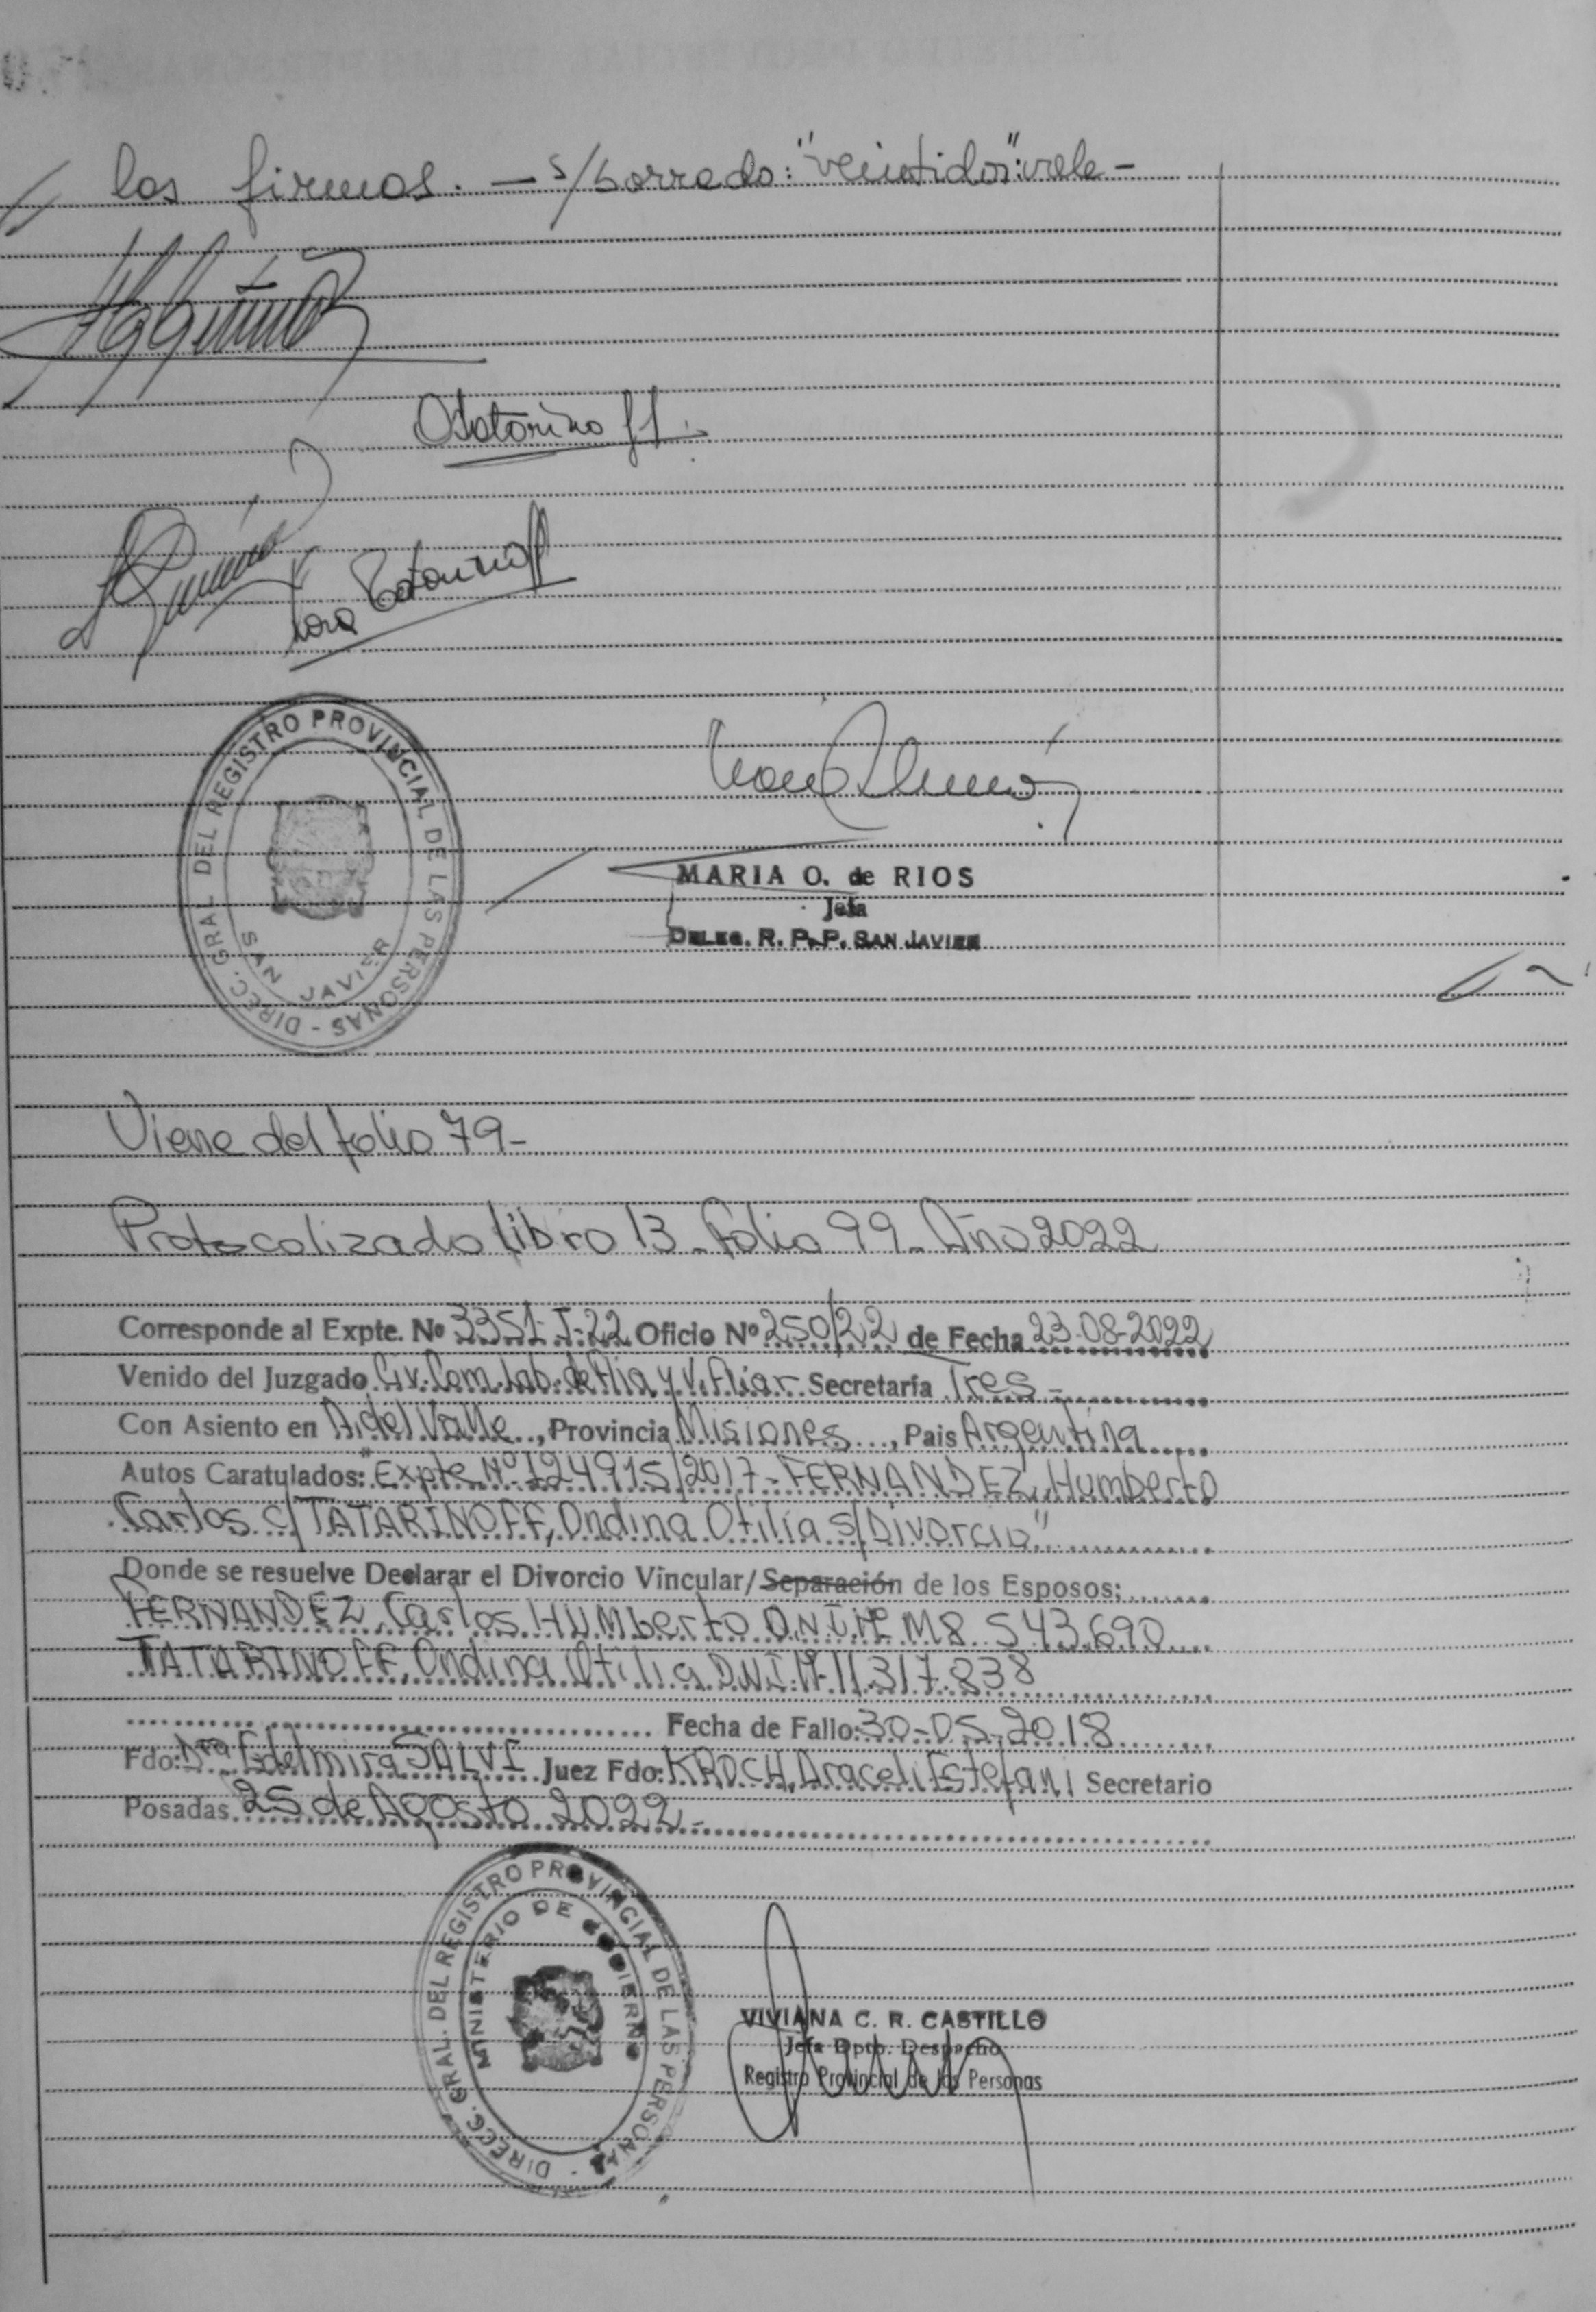 // los firmos. — s/borrado: "veintidos": vale -
Otatorino ff
MARIA O. de RIOS
Jefa
DELEG. R. P. P. SAN JAVIER
DIREC. GRAL. DEL REGISTRO PROVINCIAL DE LAS PERSONAS -
SAN JAVIER
Viene del folio 79-
Protocolizado libro 13 - folio 99 - Año 2022
Corresponde al Expte. Nº 3351-I-22 Oficio Nº 250/22 de Fecha 23-08-2022
Venido del Juzgado Civ. Com. Lab. de Flia y V. Fliar. Secretaría Tres -
Con Asiento en A. del Valle, Provincia Misiones, Pais Argentina
Autos Caratulados: "Expte Nº 124915/2017 - FERNANDEZ, Humberto
Carlos c/ TATARINOFF, Ondina Otilia s/ Divorcio"
Donde se resuelve Declarar el Divorcio Vincular/Separación de los Esposos:
FERNANDEZ, Carlos HUMberto D.N.I. Nº M8.543.690
TATARINOFF, Ondina Otilia D.N.I. Nº 11.317.838
Fecha de Fallo: 30-05-2018
Fdo: Dra Edelmira SALVI Juez Fdo: KROCH, Araceli Estefani Secretario
Posadas 25 de Agosto 2022 -
DIRECC. GRAL. DEL REGISTRO PROVINCIAL DE LAS PERSONAS -
MINISTERIO DE GOBIERNO
VIVIANA C. R. CASTILLO
Jefa Dpto. Despacho
Registro Provincial de las Personas